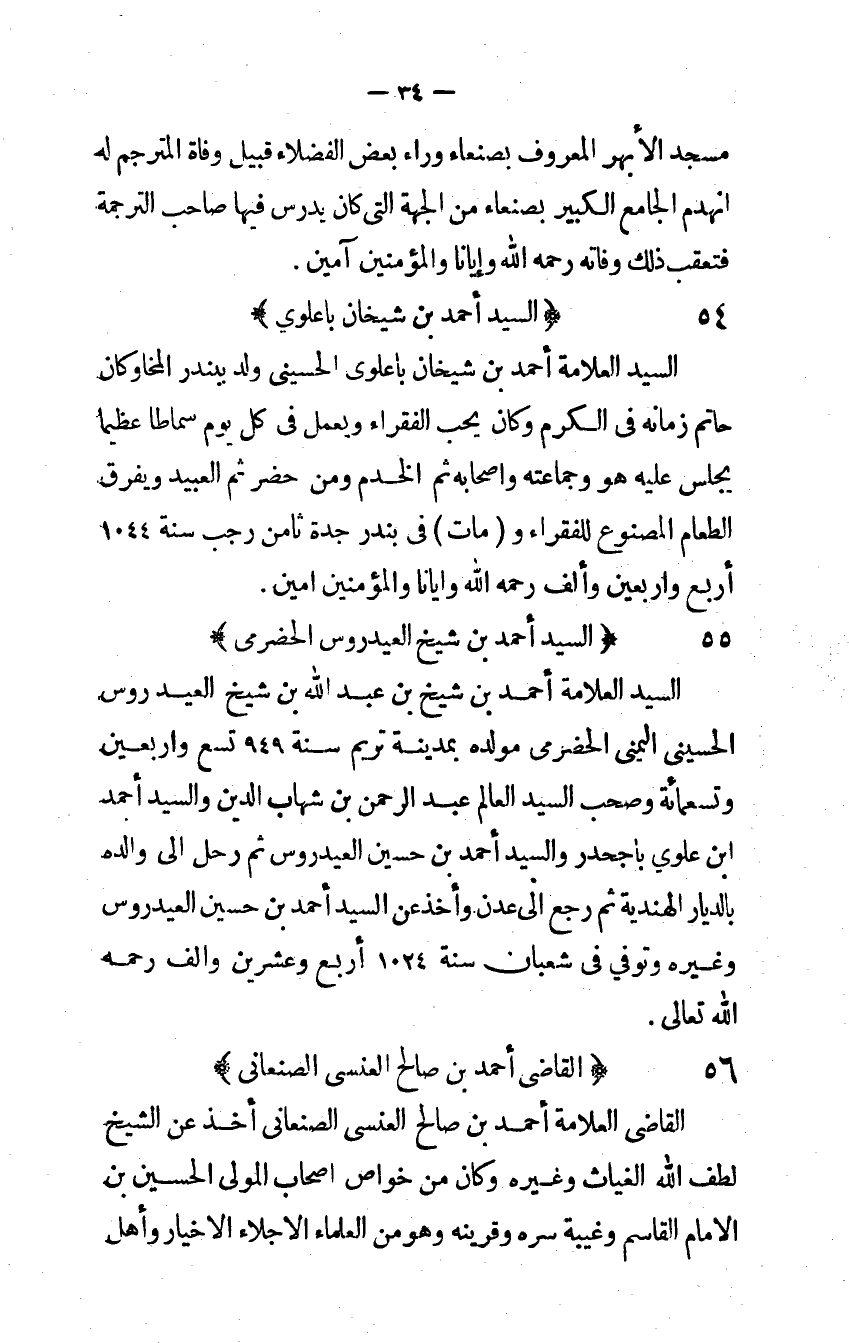 — ٣٤ —
مسجد الأبهر المعروف بصنعاء وراء بعض الفضلاء قبيل وفاة المترجم له
انهدم الجامع الكبير بصنعاء من الجهة التى كان يدرس فيها صاحب الترجمة
فتعقب ذلك وفاته رحمه الله وإيانا والمؤمنين آمين .
٥٤ ﴿ السيد أحمد بن شيخان باعلوي ﴾
السيد العلامة أحمد بن شيخان باعلوى الحسينى ولد ببندر المخا وكان
حاتم زمانه فى الكرم وكان يحب الفقراء ويعمل فى كل يوم سماطا عظيما
يجلس عليه هو وجماعته واصحابه ثم الخدم ومن حضر ثم العبيد ويفرق
الطعام المصنوع للفقراء و ( مات ) فى بندر جدة ثامن رجب سنة ١٠٤٤
أربع واربعين وألف رحمه الله وايانا والمؤمنين امين .
٥٥ ﴿ السيد أحمد بن شيخ العيدروس الحضرمى ﴾
السيد العلامة أحمد بن شيخ بن عبد الله بن شيخ العيدروس
الحسينى اليمنى الحضرمى مولده بمدينة تريم سنة ٩٤٩ تسع واربعين
وتسعمائة وصحب السيد العالم عبد الرحمن بن شهاب الدين والسيد أحمد
ابن علوي باجحدر والسيد أحمد بن حسين العيدروس ثم رحل الى والده
بالديار الهندية ثم رجع الى عدن وأخذ عن السيد أحمد بن حسين العيدروس
وغيره وتوفي فى شعبان سنة ١٠٢٤ أربع وعشرين والف رحمه
الله تعالى .
٥٦ ﴿ القاضى أحمد بن صالح العنسى الصنعانى ﴾
القاضى العلامة أحمد بن صالح العنسى الصنعانى أخذ عن الشيخ
لطف الله الغياث وغيره وكان من خواص اصحاب المولى الحسين بن
الامام القاسم وغيبة سره وقرينه وهو من العلماء الاجلاء الاخيار وأهل